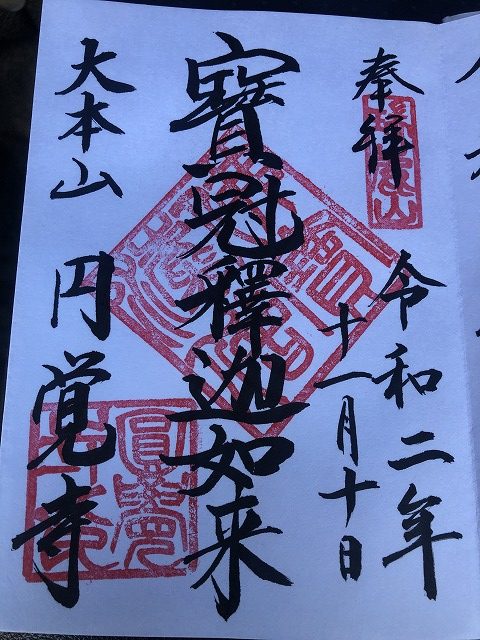 奉拝
令和二年
十一月十日
寳冠釋迦如来
大本山
円覚寺